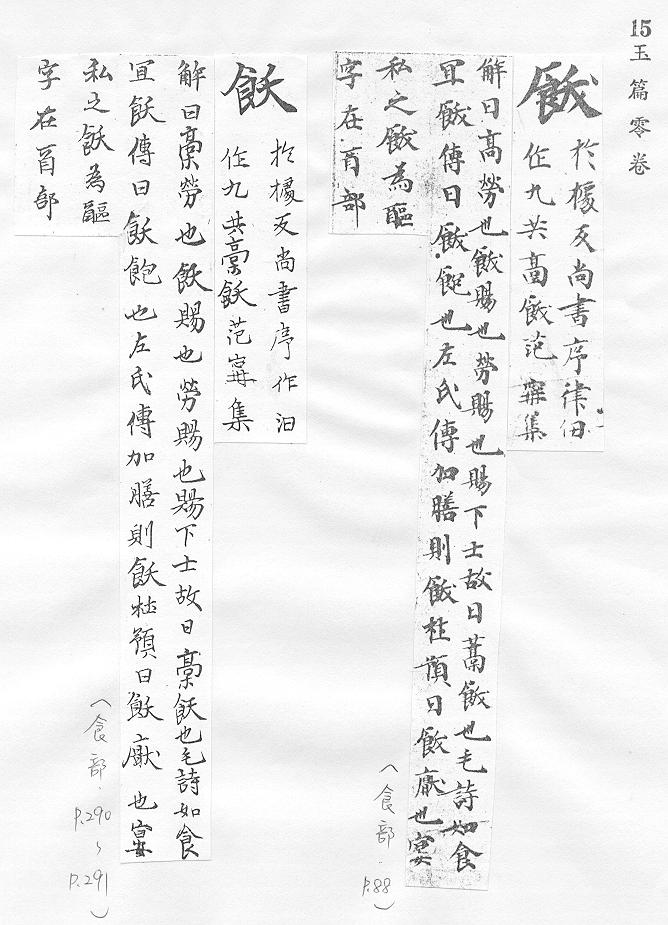 15玉篇零卷
飫
於㩀反尚書序律伹
作九共高飫范寗集
解曰高勞也飫賜也勞賜也賜下士故曰藁飫也毛詩如食
冝飫傳曰飫飽也左氏傳加膳則飫杜預曰飫猒也宴
私之飫為䣱
字在酉部
(食部.P.88)
飫
扵㩀反尚書序作汨
作九共槀飫范寗集
解曰槀勞也飫賜也勞賜也賜下士故曰槀飫也毛詩如食
冝飫傳曰飫飽也左氏傳加膳則飫杜預曰飫猒也宴
私之飫為䣱
字在酉部
(食部.P.290~P.291)